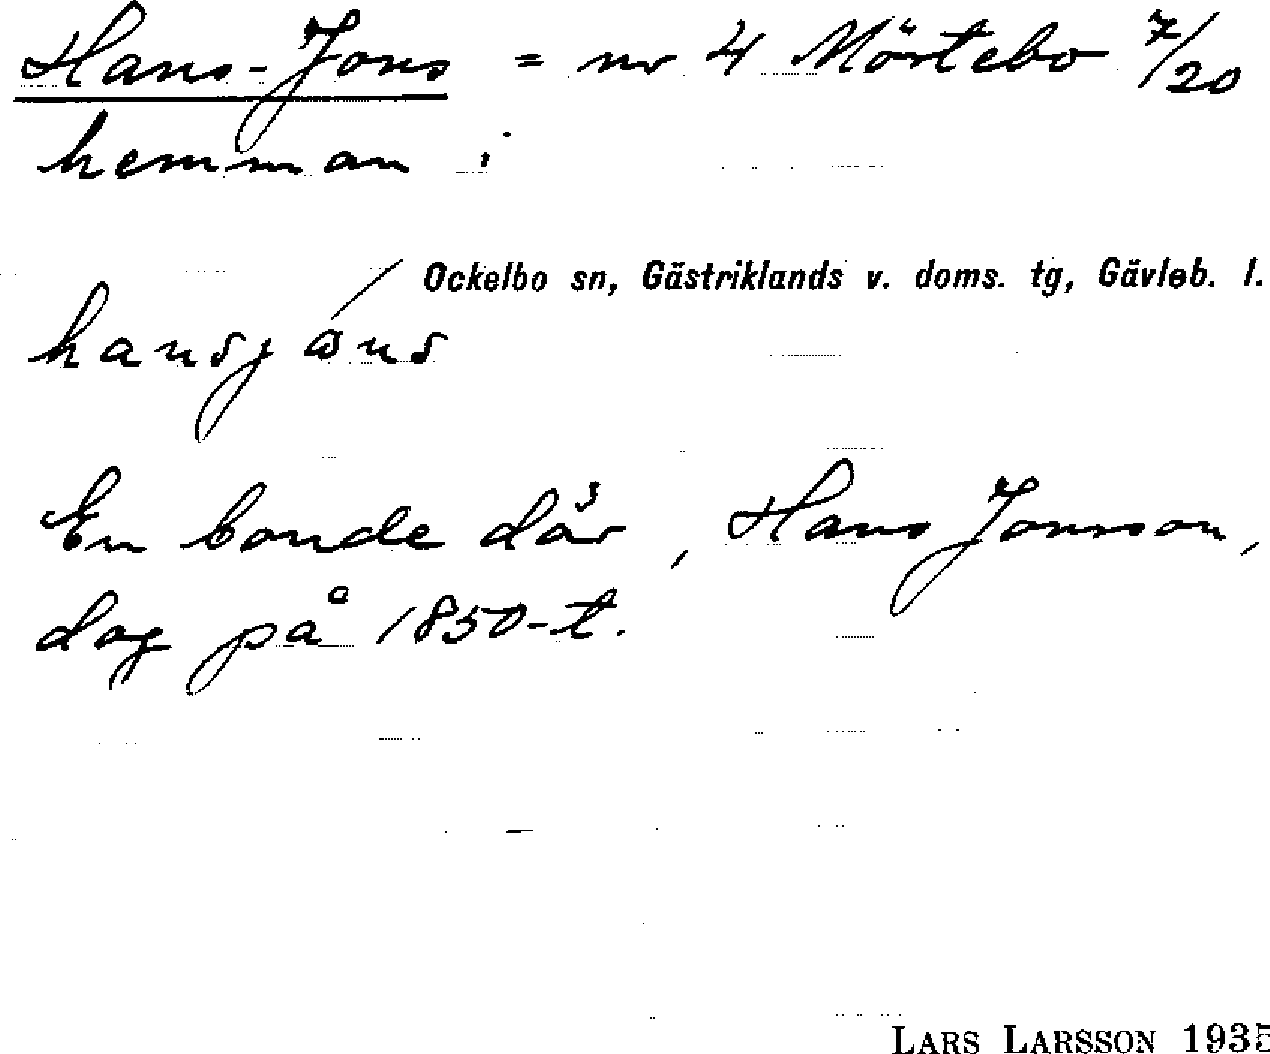 Hans-Jons = nr 4 Mörtebo 7/20
hemman i
Ockelbo sn, Gästriklands v. doms. tg, Gävleb. l.
En bonde där, Hans Jonsson,
dog på 1850-t.
LARS LARSSON 1935